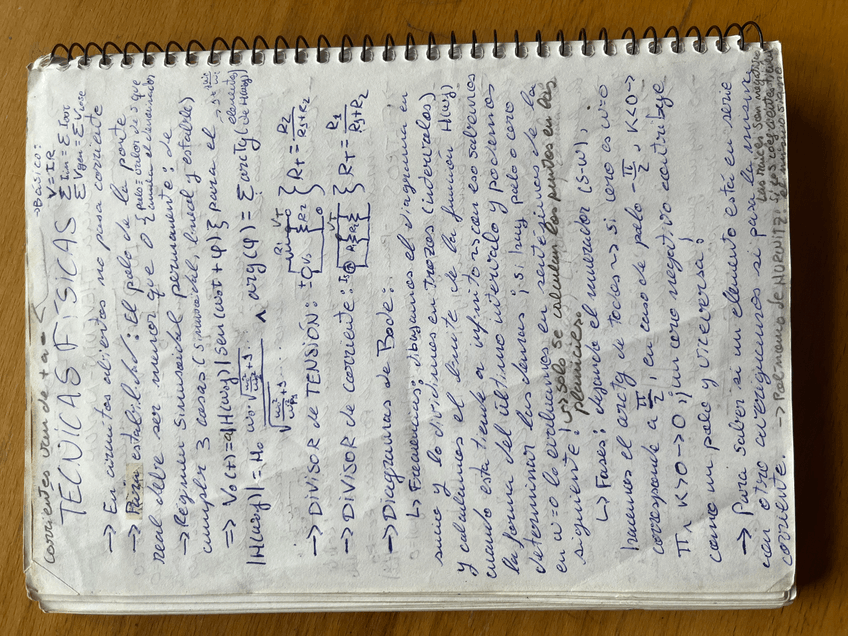 corrientes van de + a -
TECNICAS FISICAS
→Básico:
V=IR
Σ Ient = Σ Isal
Σ Vgen = Σ Vcons
→ En circuitos abiertos no pasa corriente
→ Para estabilidad: El polo de la parte
real debe ser menor que 0 {polo = valor de s que
anula el denominador
→ Regimen sinusoidal permanente: de
cumplir 3 cosas (sinusoidal, lineal y estable)
⇒ Vo(t) = a|H(ωj)| sen(ωot + φ) } para el
|H(ωj)| = Ho ^ arg(φ) = Σ arctg (elementos de H(ωj))
→ DIVISOR de TENSIÓN: R1 R2 VT } RT = R2/(R1+R2)
→ DIVISOR de corriente: } RT = R1/(R1+R2)
→ Diagramas de Bode:
↳ Frecuencias: dibujamos el diagrama en
sucio y lo dividimos en trozos (intervalos)
y calculamos el limite de la funcion H(ωj)
cuando esta tiende a infinito ∞, con eso sabremos
la forma del último intervalo y podemos
determinar los demas; si hay polo o cero
en w=0 lo evaluamos en
siguiente! ↳ solo se calculan los puntos en las
planicies
↳ Fases: dejando el numerador (S-w),
hacemos el arctg de todos → si cero es w=0
corresponde a π/2; en caso de polo -π/2, K<0 →
π, K>0 → 0; un cero negativo contribuye
como un polo y viceversa!
→ Para saber si un elemento está en serie
con otro averiguamos si pasa la misma
corriente. → Polinomio de HURWITZ:
las raices sean negativas